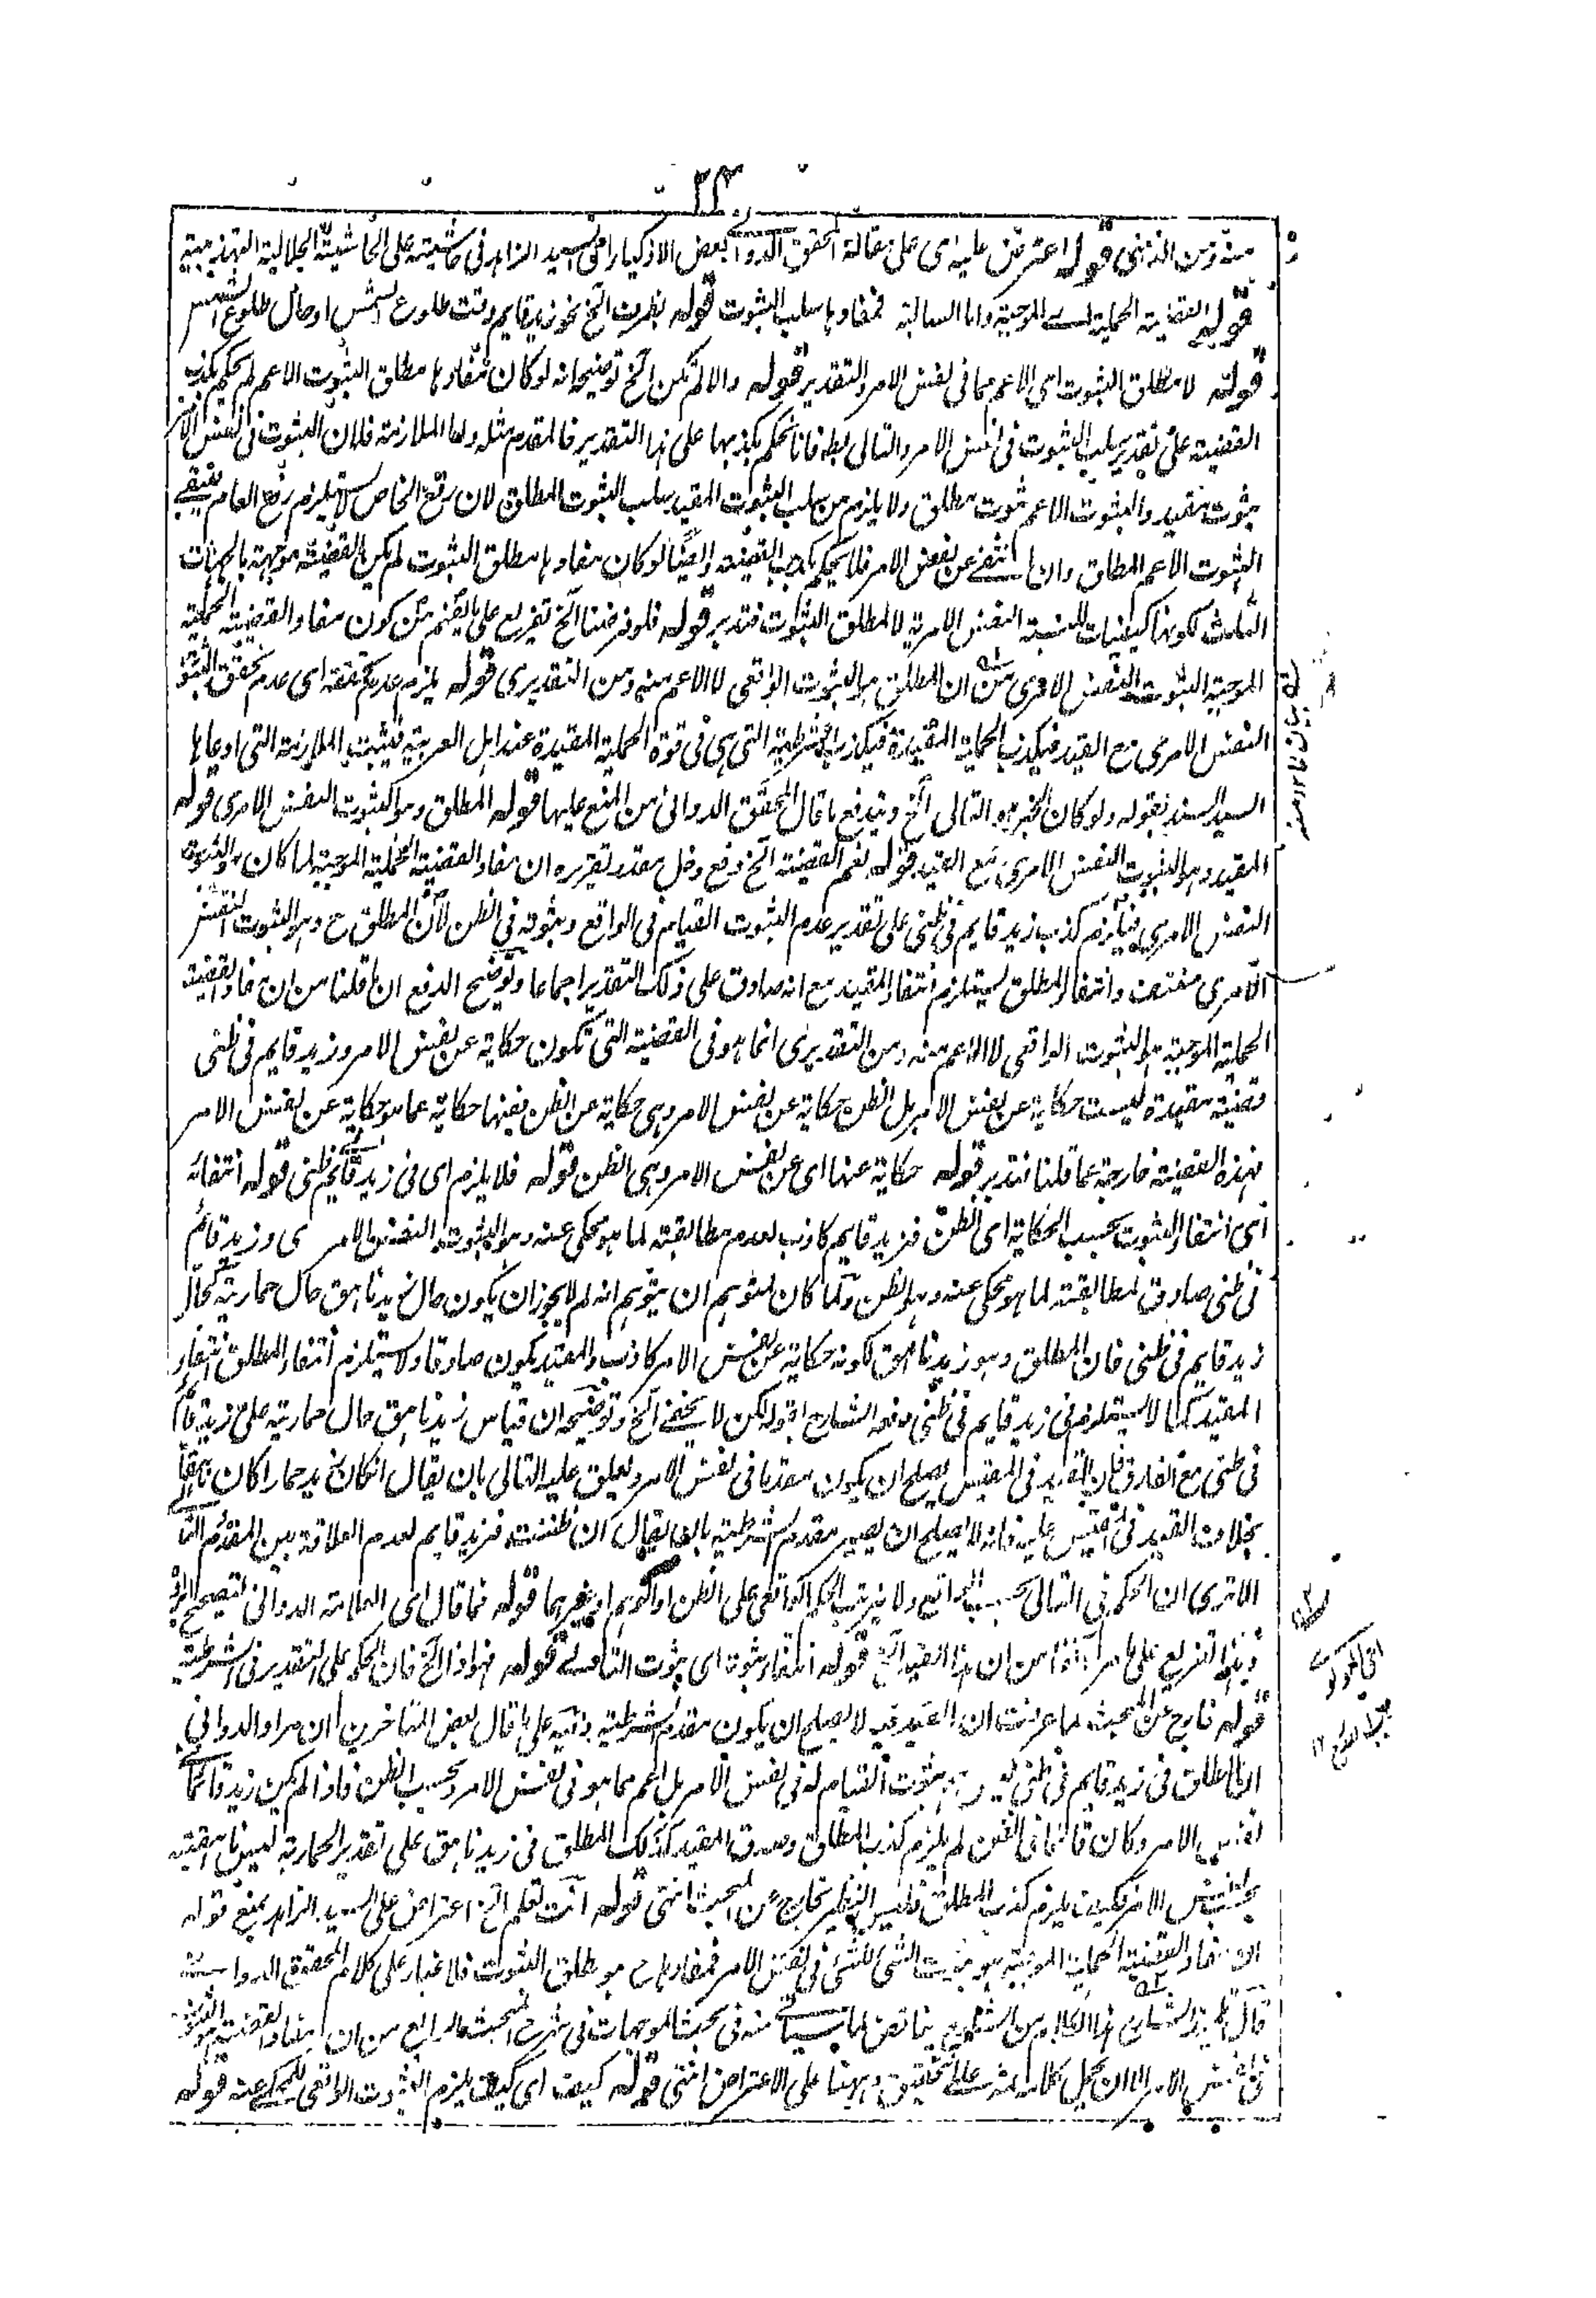 ٢٣
منه ومن الذهنى قوله اعترض عليه اى على مقالة المحقق الدوانى بعض الاذكيا اى السيد الزاهد فى حاشيته على الحاشية الجلالية التهذيبية
قوله القضية الحملية اى الموجبة واما السالبة فمفادها سلب الثبوت قوله بظرف الخ نحو زيد قايم وقت طلوع الشمس او حال طلوع الشمس
قوله لا مطلق الثبوت اى الاعم مما فى نفس الامر والتقدير قوله والا لم تكن الخ توضيحه انه لو كان مفادها مطلق الثبوت الاعم لم يحكم بكذب
القضية على تقدير سلب الثبوت فى نفس الامر والتالى بط فانا نحكم بكذبها على هذا التقدير فالمقدم مثله واما الملازمة فلان الثبوت فى نفس الامر
ثبوت مقيد والثبوت الاعم ثبوت مطلق ولا يلزم من سلب الثبوت المقيد سلب الثبوت المطلق لان رفع الخاص لا يستلزم رفع العام فيبقى
الثبوت الاعم المطلق وان انتفى عن نفس الامر فلا يحكم بكذب القضية وايضا لو كان مفادها مطلق الثبوت لم يكن القضية موجهة بالجهات
الثلث لكونها كيفيات للنسبة النفس الامرية لا لمطلق الثبوت فتدبر قوله فلو فرضنا الخ تفريع على ما يفهم من كون مفاد القضية الحملية
الموجبة الثبوت النفس الامرى من ان المطلق هو الثبوت الواقعى لا الاعم منه ومن التقديرى قوله يلزم عدم تحققه اى عدم تحقق الثبوت
النفس الامرى مع القيد فيكذب الحملية المقيدة فيكذب الشرطية التى هى فى قوة الحملية المقيدة عند اهل العربية فيثبت الملازمة التى ادعاها
السيد السند بقوله ولو كان الخبر هو التالى الخ ويندفع ما قال المحقق الدوانى من المنع عليها قوله المطلق وهو الثبوت النفس الامرى قوله
المقيد وهو الثبوت النفس الامرى مع القيد قوله نعم القضية الخ دفع دخل مقدر تقريره ان مفاد القضية الحملية الموجبة لما كان هو الثبوت
النفس الامرى فيلزم كذب زيد قايم فى ظنى على تقدير عدم الثبوت القيام فى الواقع وثبوته فى الظن لان المطلق ح وهو الثبوت النفس
الامرى منتف وانتفاء المطلق يستلزم انتفاء المقيد مع انه صادق على ذلك التقدير اجماعا وتوضيح الدفع ان ما قلنا من ان مفاد القضية
الحملية الموجبة هو الثبوت الواقعى لا الاعم منه ومن التقديرى انما هو فى القضية التى تكون حكاية عن نفس الامر وزيد قايم فى ظنى
قضية مقيدة ليست حكاية عن نفس الامر بل الظن حكاية عن نفس الامر وهى حكاية عن الظن ففيها حكاية عما هو حكاية عن نفس الامر
فهذه القضية خارجة عما قلنا فتدبر قوله حكاية عنها اى عن نفس الامر وهى الظن قوله فلا يلزم اى فى زيد قايم فى ظنى قوله انتفائه
اى انتفاء الثبوت بحسب الحكاية اى الظن فزيد قايم كاذب لعدم مطابقته لما هو محكى عنه وهو الثبوت النفس الامرى وزيد قائم
فى ظنى صادق لمطابقته لما هو محكى عنه وهو الظن ولما كان لمتوهم ان يتوهم انه لم لا يجوز ان يكون حال زيد ناهق حال حماريته كحال
زيد قايم فى ظنى فان المطلق وهو زيد ناهق لكونه حكاية عن نفس الامر كاذب والمقيد يكون صادقا ولا يستلزم انتفاء المطلق انتفاء
المقيد كما لا يستلزم فى زيد قايم فى ظنى دفعه الشارح بقوله لكن لا يخفى الخ وتوضيحه ان قياس زيد ناهق حال حماريته على زيد قائم
فى ظنى مع الفارق فان القيد فى المقيس يصلح ان يكون مقدما فى نفس الامر ويعلق عليه التالى بان يقال ان كان زيد حمارا كان ناهقا
بخلاف القيد فى المقيس عليه فانه لا يصلح ان يصير مقدم شرطية بان يقال ان ظننت فزيد قايم لعدم العلاقة بين المقدم والتالى
الا ترى ان الحكم فى التالى بحسب الواقع ولا يترتب الحكم الواقعى على الظن او الوهم او غيرهما قوله فما قال اى العلامة الدوانى لتصحيح
التفريع على ما مر آنفا من ان هذا القيد الخ قوله انتفاء ثبوته اى ثبوت التالى قوله فهو اذا الخ فان الحكم على التقدير فى الشرطية
قوله خارج عن المبحث لما عرفت ان القيد فيه لا يصلح ان يكون مقدم شرطية على ما قال بعض المتاخرين ان مراد الدوانى
ان المطلق فى زيد قايم فى ظنى ليس هو ثبوت القيام له فى نفس الامر بل اعم مما هو فى نفس الامر وبحسب الظن فاذا لم يكن زيد قائما
نفس الامر وكان قائما فى الظن لم يلزم كذب المطلق وصدق المقيد كذلك المطلق فى زيد ناهق على تقدير الحمارية ليس ناهقيته
بحسب نفس الامر فكيف يلزم كذب المطلق فليس النظير بخارج عن المبحث انتهى قوله انت تعلم الخ اعتراض على السيد الزاهد بمنع قوله
ان مفاد القضية الحملية الموجبة هو ثبوت الشئ للشئ فى نفس الامر فمفادها هو مطلق الثبوت فلا غبار على كلام المحقق الدوانى
قال الشارح هذا الكلام من يناقض لما سياتى منه فى بحث الموجهات فى شرح المبحث الرابع من ان مفاد القضية هو الثبوت
فى نفس الامر الا ان يحمل كلامه ثمه على التحقيق وههنا على الاعتراض انتهى قوله كيف اى كيف يلزم الثبوت الواقعى للمحكى عنه قوله